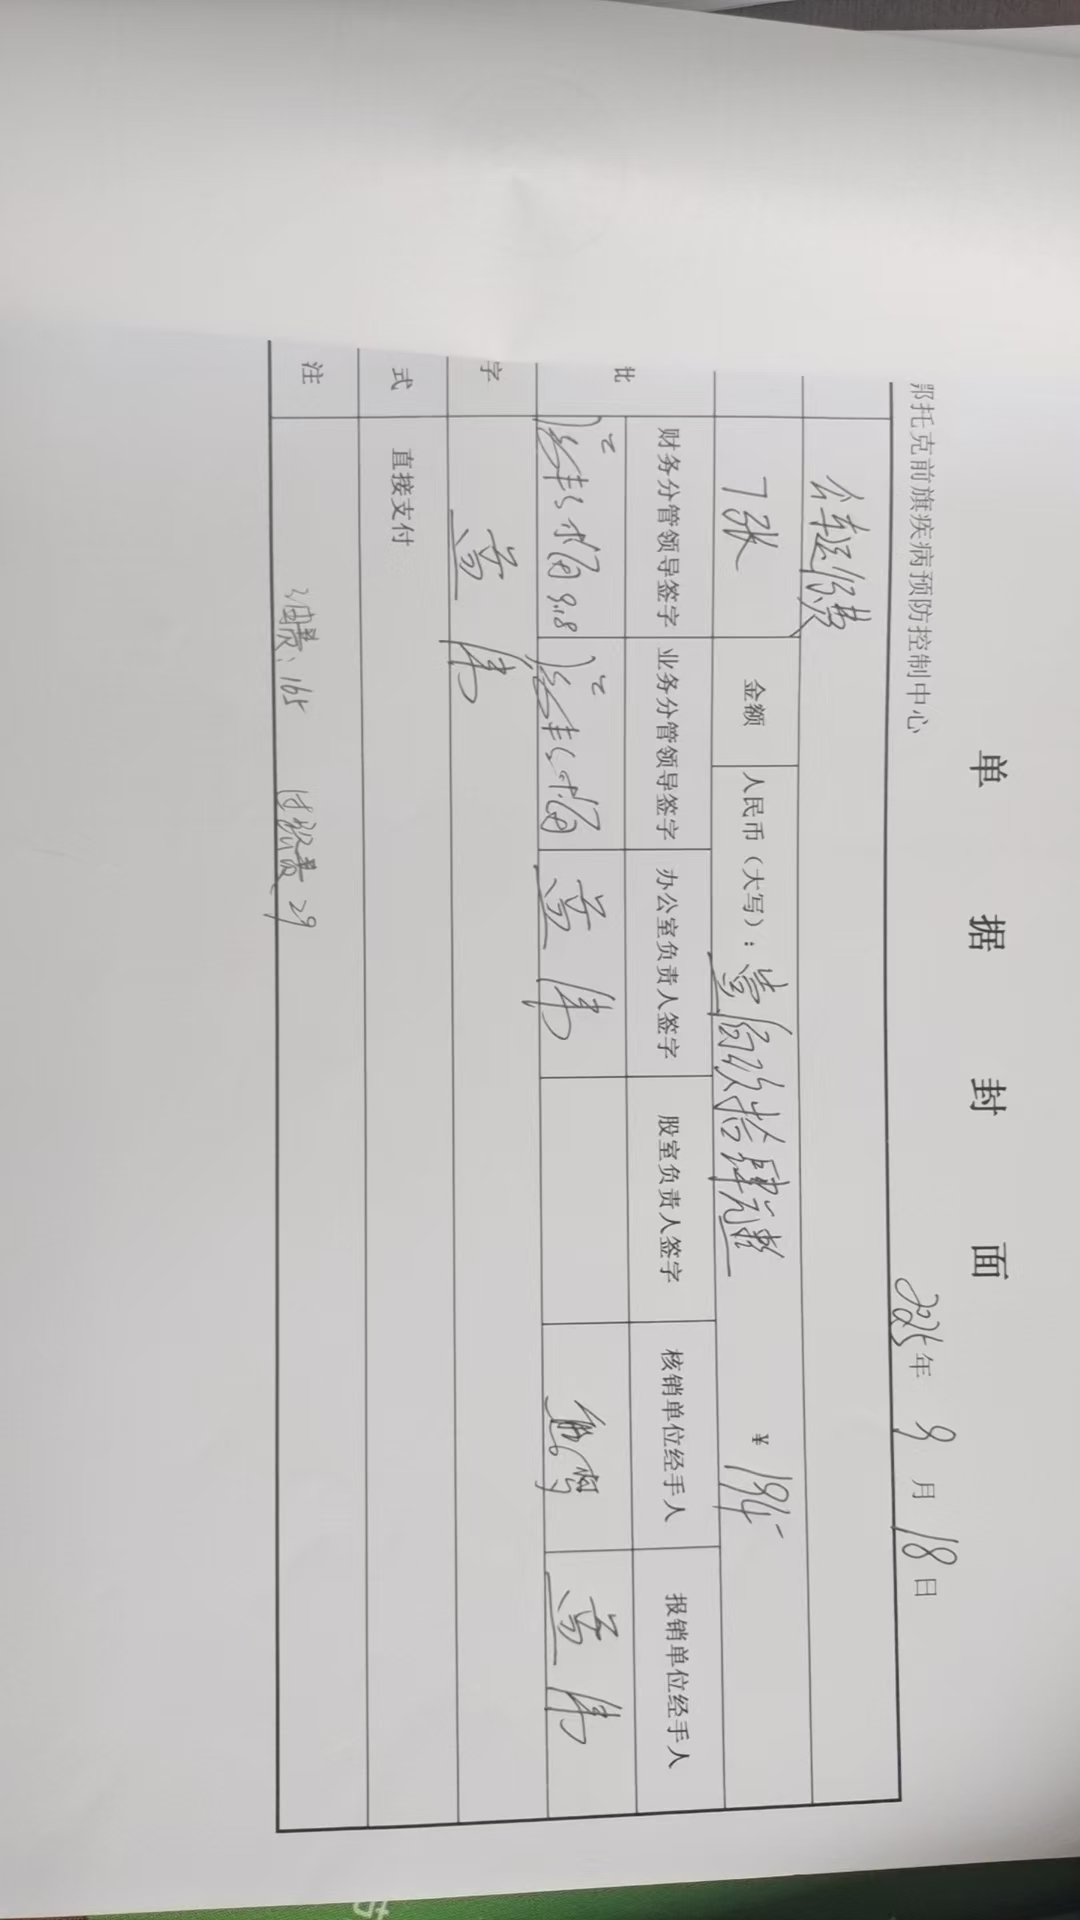 单据封面
鄂托克前旗疾病预防控制中心 2025年9月18日
公车运行费
7张 金额 人民币（大写）：壹佰玖拾肆元整 ¥194-
批 财务分管领导签字 业务分管领导签字 办公室负责人签字 股室负责人签字 核销单位经手人 报销单位经手人
9.18
字
式 直接支付
注 油费：165 过路费 29